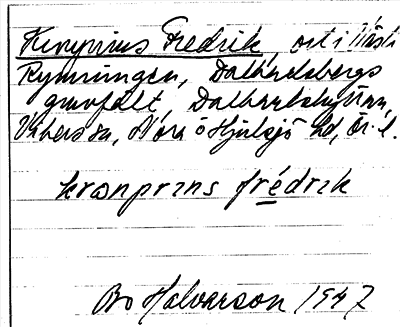 Kronprins Fredrik, ort i Västi
Rymningen, Dalkarlsbergs
gruvfält, Dalkarlshyttan,
Vikers sn, Nora o Hjulsjö hd, Ör. l.
kranprins frédrik
Bo Halvarson 1947